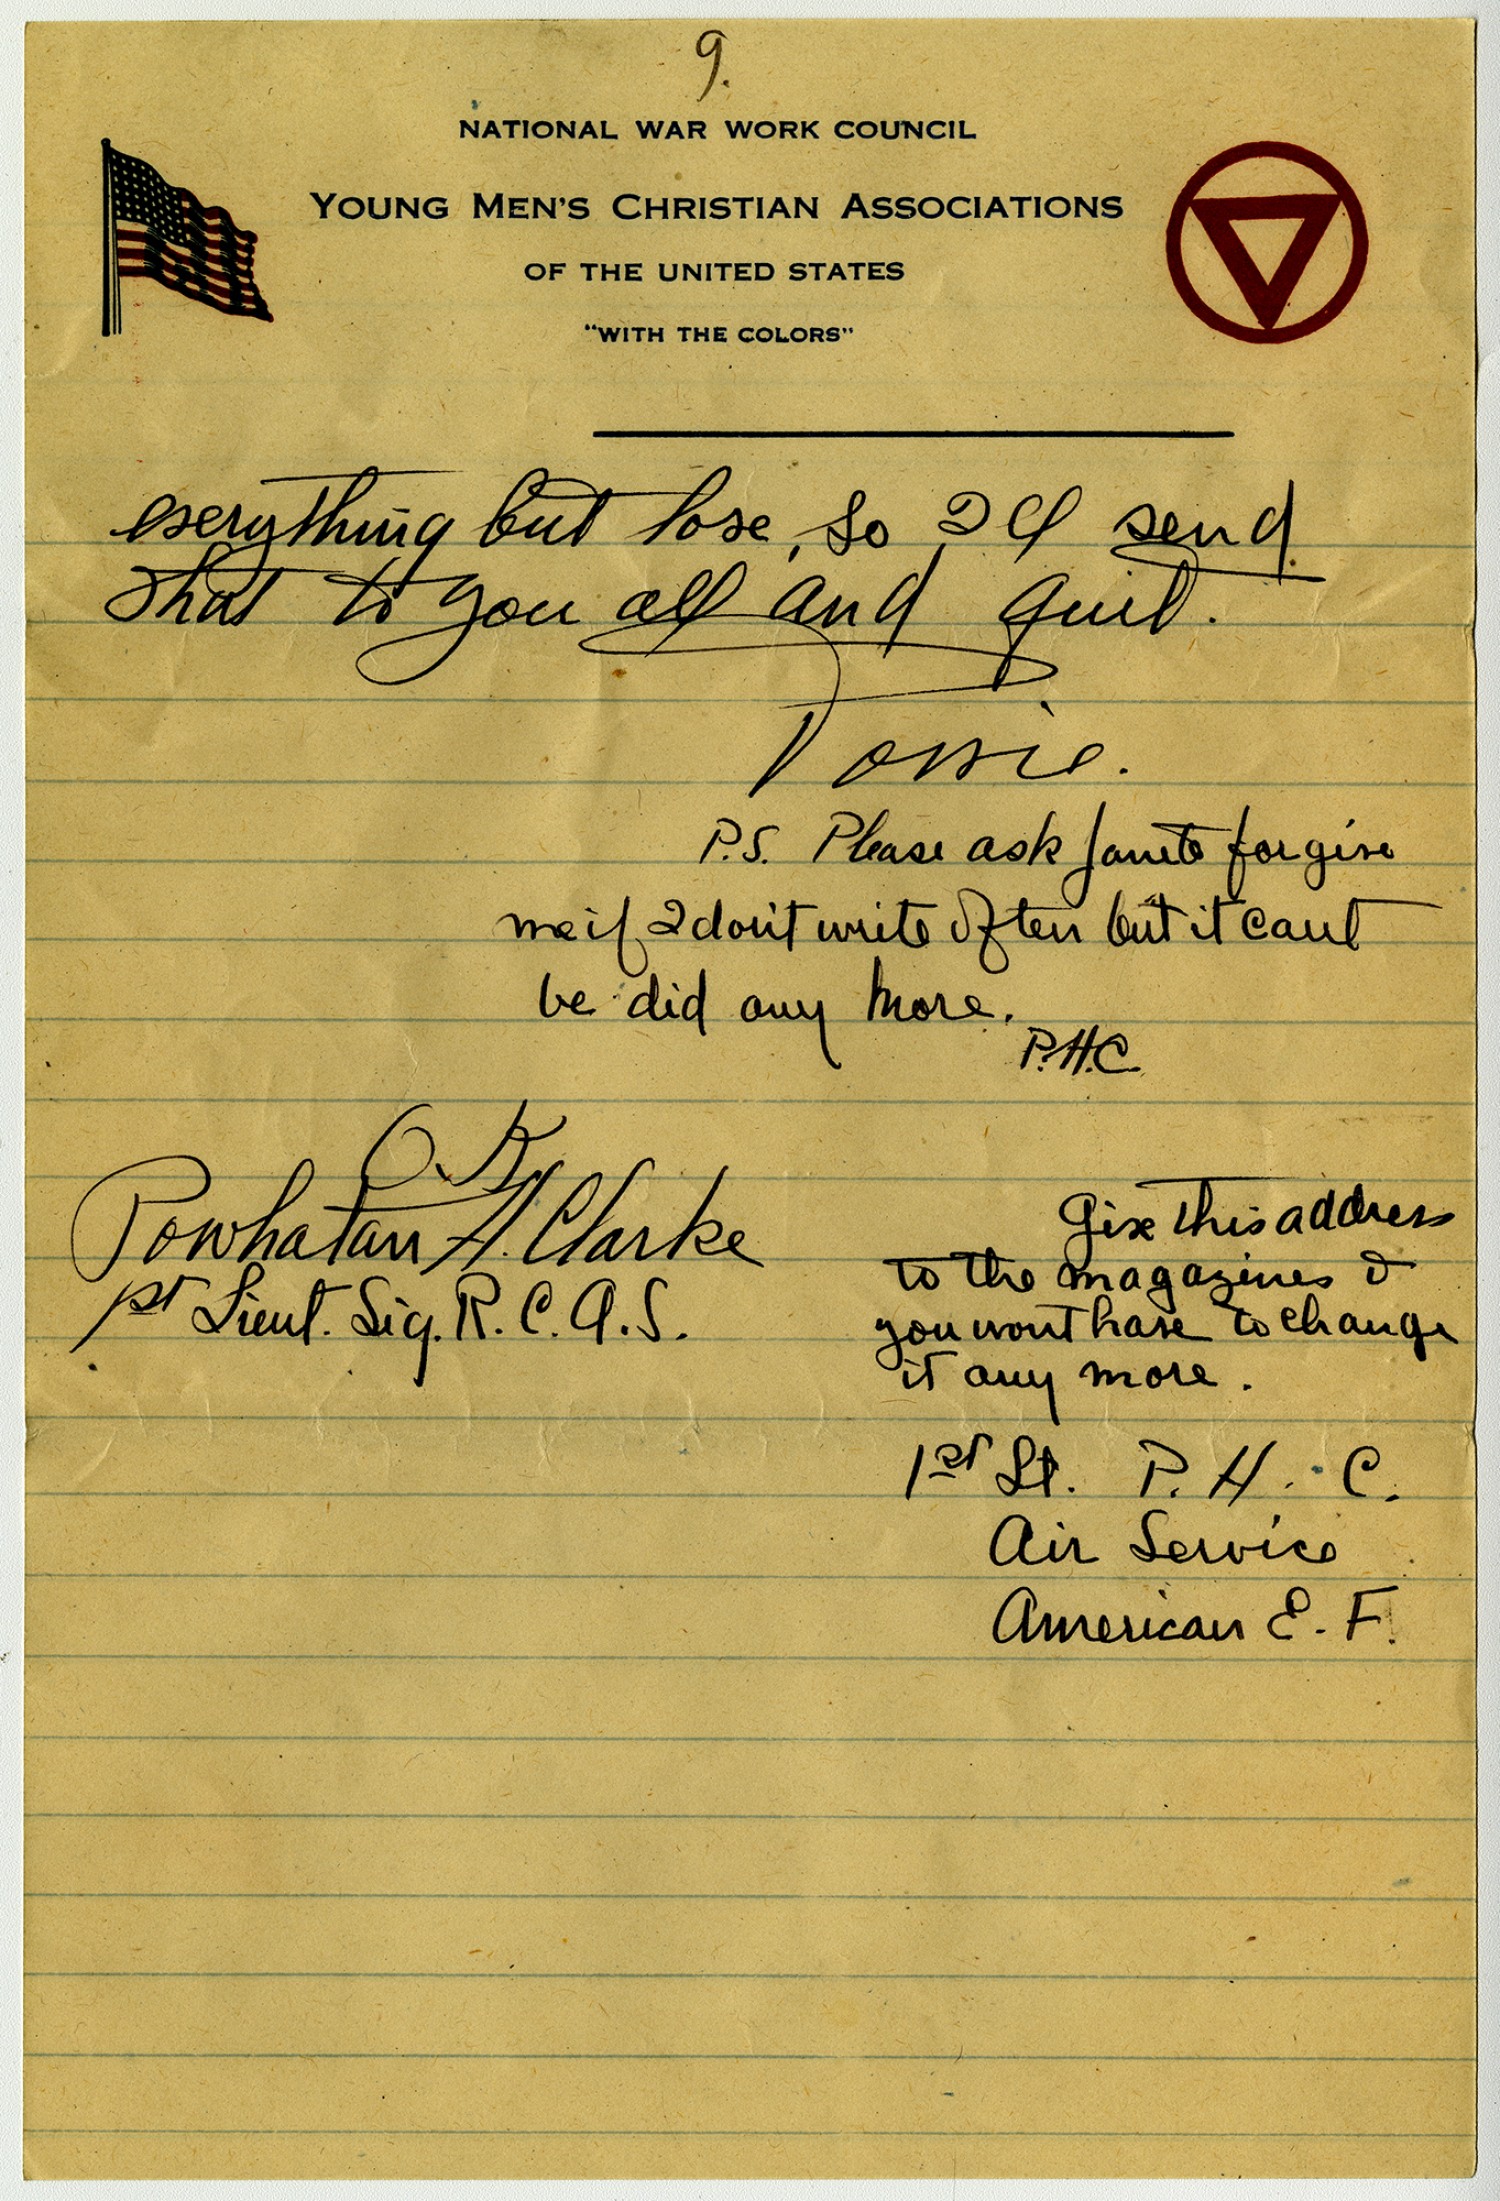 9.
NATIONAL WAR WORK COUNCIL
YOUNG MEN'S CHRISTIAN ASSOCIATIONS
OF THE UNITED STATES
"WITH THE COLORS"
everything but love, so I'll send
that to you all and quit.
P.S. Please ask Janet to forgive
me if I don't write often but it can't
be did any more.
P.H.C.
O.K.
Powhatan H. Clarke
1st Lieut. Sig. R.C.A.S.
Give this address
to the magazines &
you wont have to change
it any more.
1st Lt. P. H. C.
Air Service
American E. F.